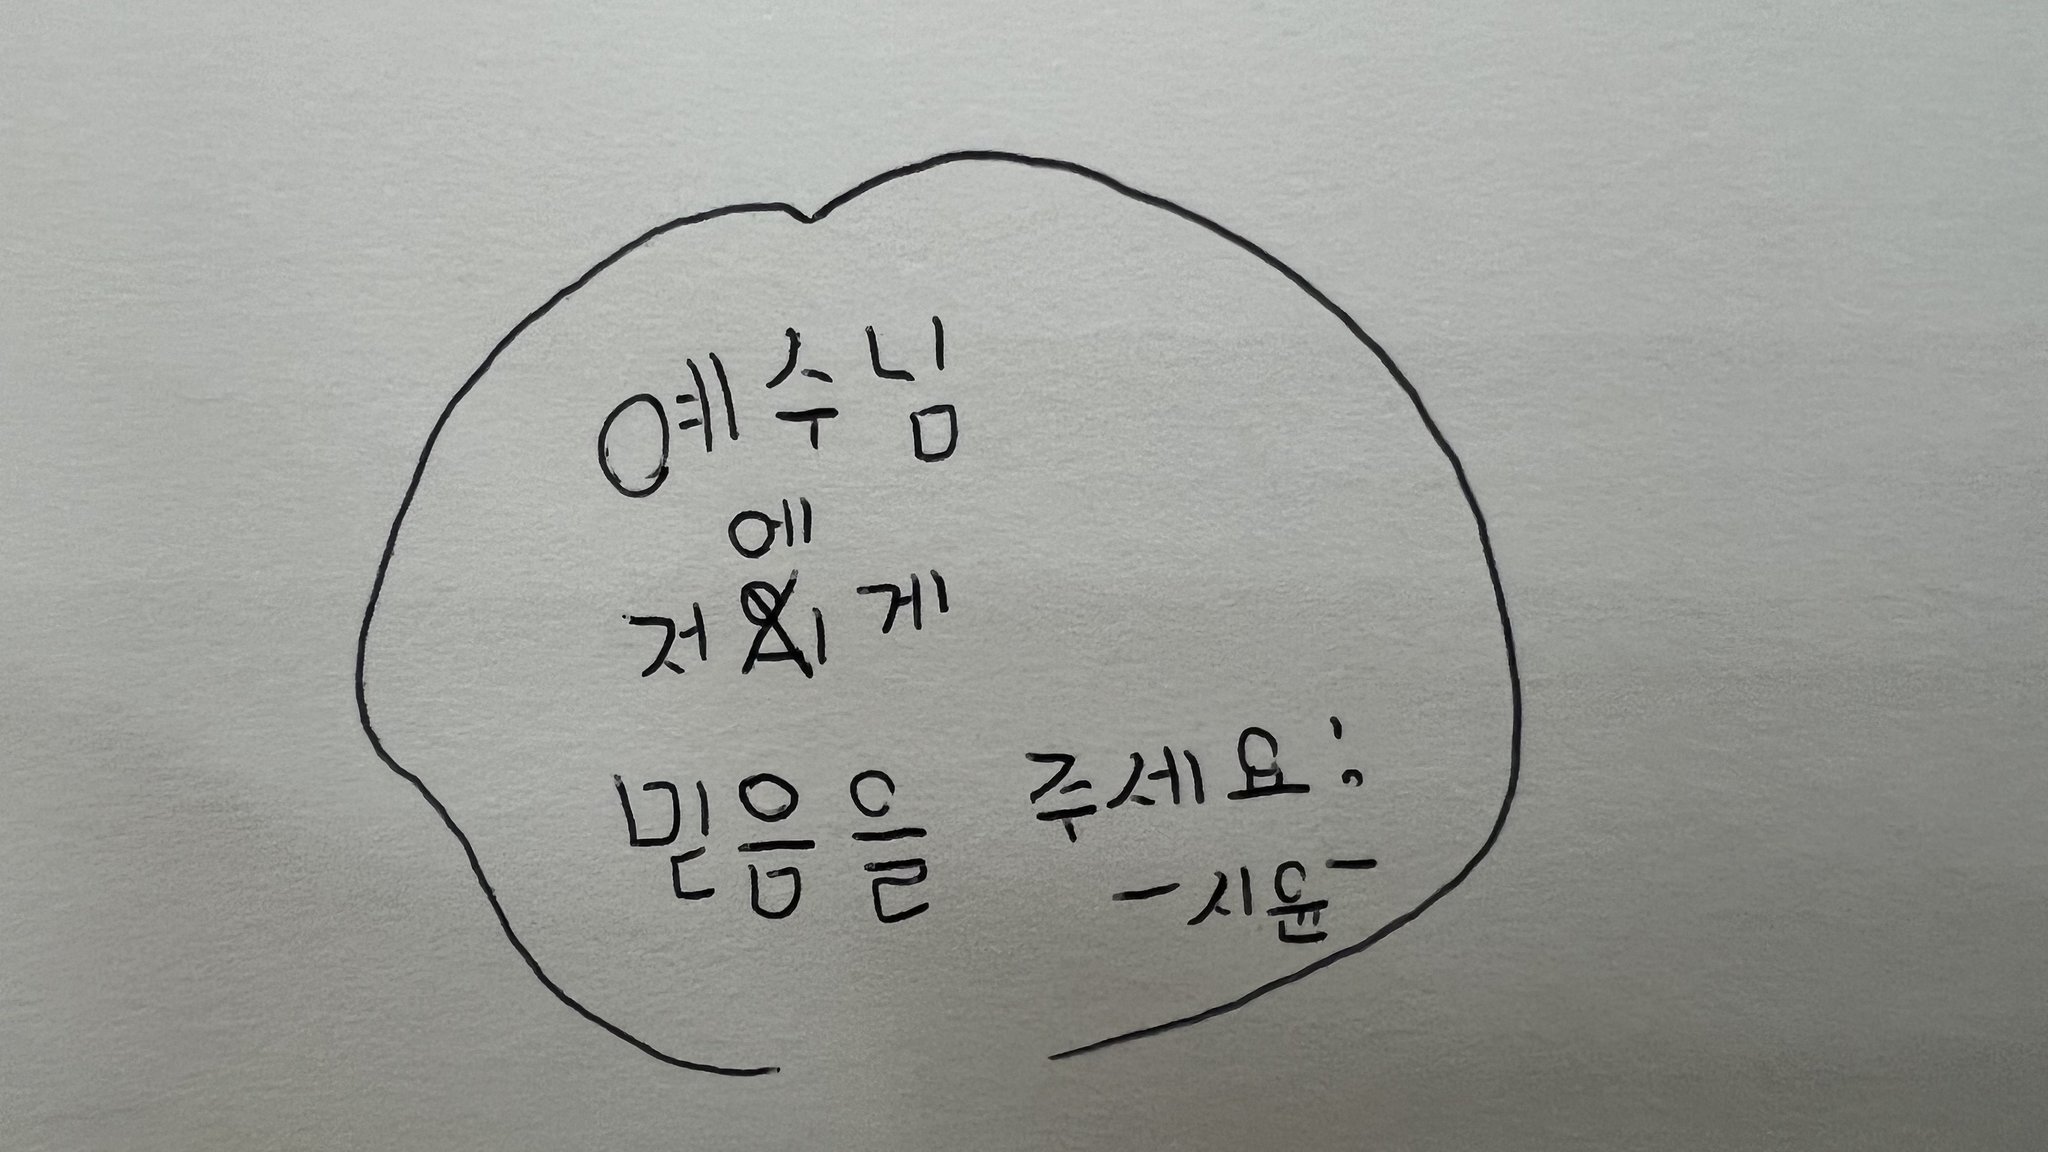 예수님
저에게
믿음을 주세요!
-시윤-